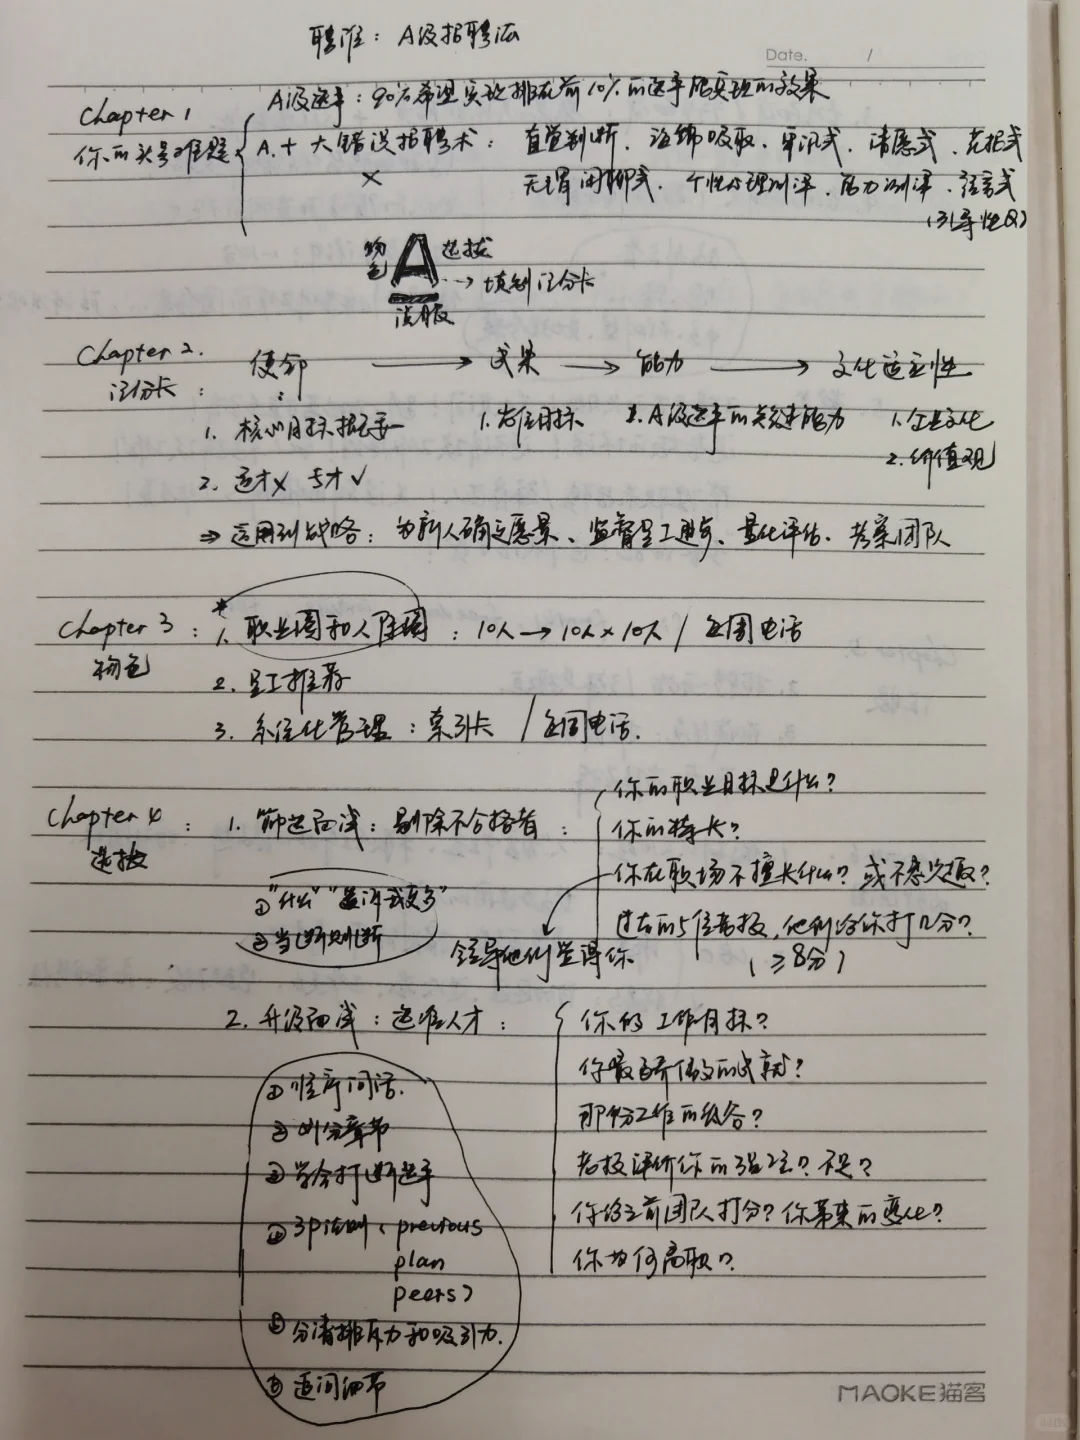 聘谁：A级招聘法
Date. /
Chapter 1
你的头号难题
A级选手：90%希望实现排在前10%的选手能实现的效果
A. 十大错误招聘术：直觉判断、海绵吸取、审讯式、请愿式、花招式
×
无谓闲聊式、个性心理测评、能力测评、预言式
（引导性Q）
物色 A 选拔
→ 填制记分卡
说服
Chapter 2.
记分卡：
使命 → 成果 → 能力 → 文化适应性
1. 核心目标概要
1. 岗位目标
2. A级选手的关键能力
1. 企业文化
2. 价值观
2. 通才× 专才√
⇒ 运用到战略：为新人确立愿景、监督员工进步、量化评估、考察团队
Chapter 3：
物色
* 1. 职业圈和人际圈：10人→10人×10人 / 每周电话
2. 员工推荐
3. 系统化管理：索引卡 / 每周电话.
Chapter 4：
选拔
1. 筛选面试：剔除不合格者：
你的职业目标是什么？
你的特长？
你在职场不擅长什么？或不感兴趣？
过去的5位老板，他们给你打几分？
（≥8分）
①"什么" "告诉我更多"
②当断则断
领导他们觉得你
2. 升级面试：选准人才：
你的工作目标？
你最引以为傲的成就？
那份工作的
老板评价你的强项？不足？
你给之前团队打分？你带来的变化？
你为何离职？
① 顺序问话.
② 划分章节
③ 学会打断选手
④ 3P法则（previous
plan
peers）
⑤ 分清排斥力和吸引力.
⑥ 追问细节
MAOKE猫客